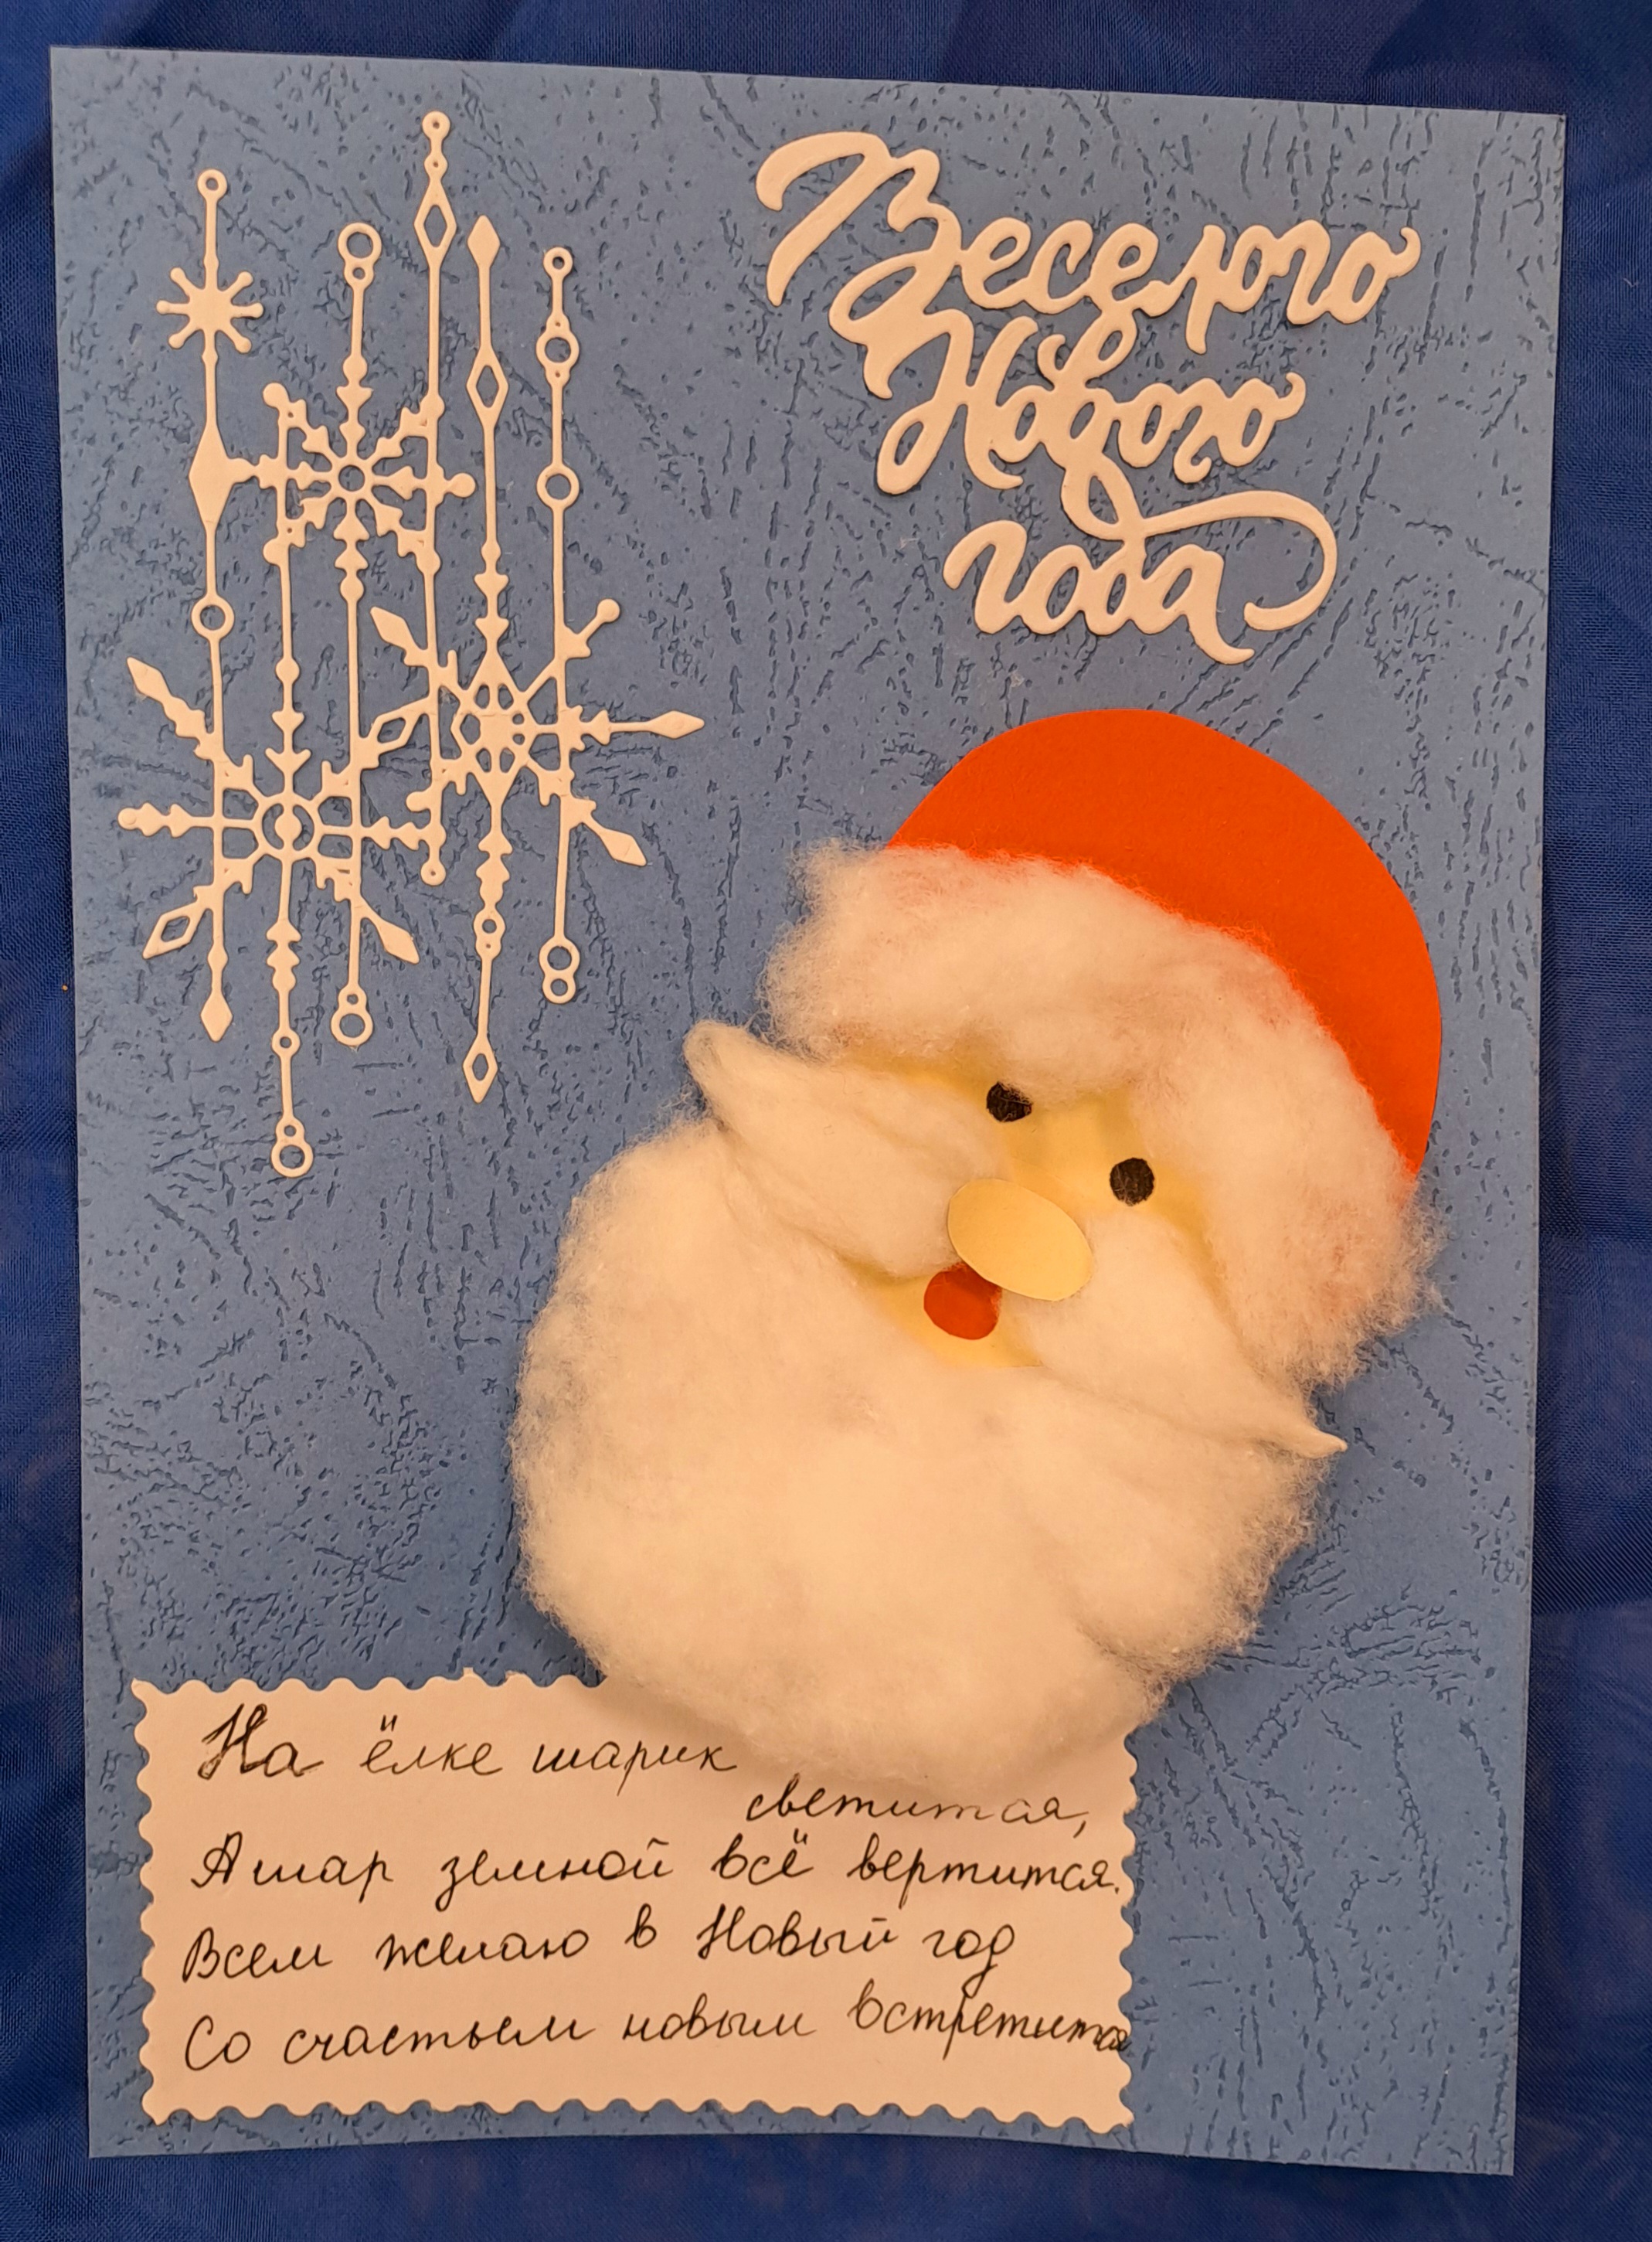 Веселого
Нового
года
На ёлке шарик
светится,
А шар земной всё вертится.
Всем желаю в Новый год
Со счастьем новым встретится